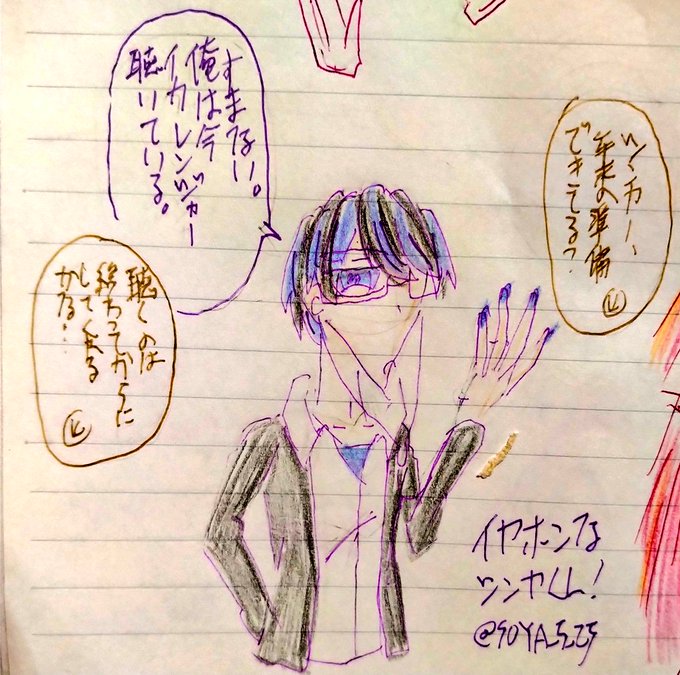 シンヤー、
年末の準備
できてる?
すまない。
俺は今
イカレンジャー
聴いている。
聴くのは
終わってからに
してくれる
かな…
イヤホンな
シンヤくん!